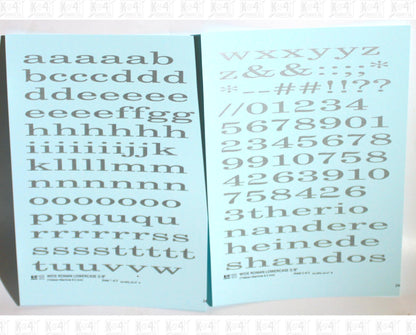 aaaaab
bcccddd
ddeeeee
eeeeffgg
hhhhhhh
iiiiiiiijk
kllllmm
nnnnnn
oooooo
ppququ
rrrrrrss
sssstttttt
tuuvvw
WIDE ROMAN LOWERCASE
wxxyyz
&&&:::;;*
*--##!!??
//01234
5678901
2345678
9910758
4263910
758426
3therio
nandere
heinede
shandos
WIDE ROMAN LOWERCASE